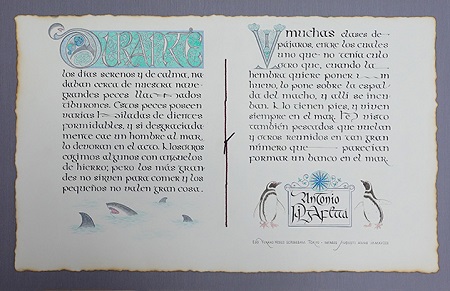 DURANTE
los días serenos y de calma, na
daban cerca de nuestra nave
grandes peces llamados
tiburones. Estos peces poseen
varias hiladas de dientes
formidables, y si desgraciada
mente cae un hombre al mar,
lo devoran en el acto. Nosotros
cogimos algunos con anzuelos
de hierro; pero los más gran
des no sirven para comer y los
pequeños no valen gran cosa.
Vi muchas clases de
pájaros, entre los cuales
uno que no tenía culo
otro que, cuando la
hembra quiere poner un
huevo, lo pone sobre la espal
da del macho, y allí se incu
ban. No tienen pies, y viven
siempre en el mar. He visto
también pescados que vuelan
y otros reunidos en tan gran
número que parecían
formar un banco en el mar.
Antonio